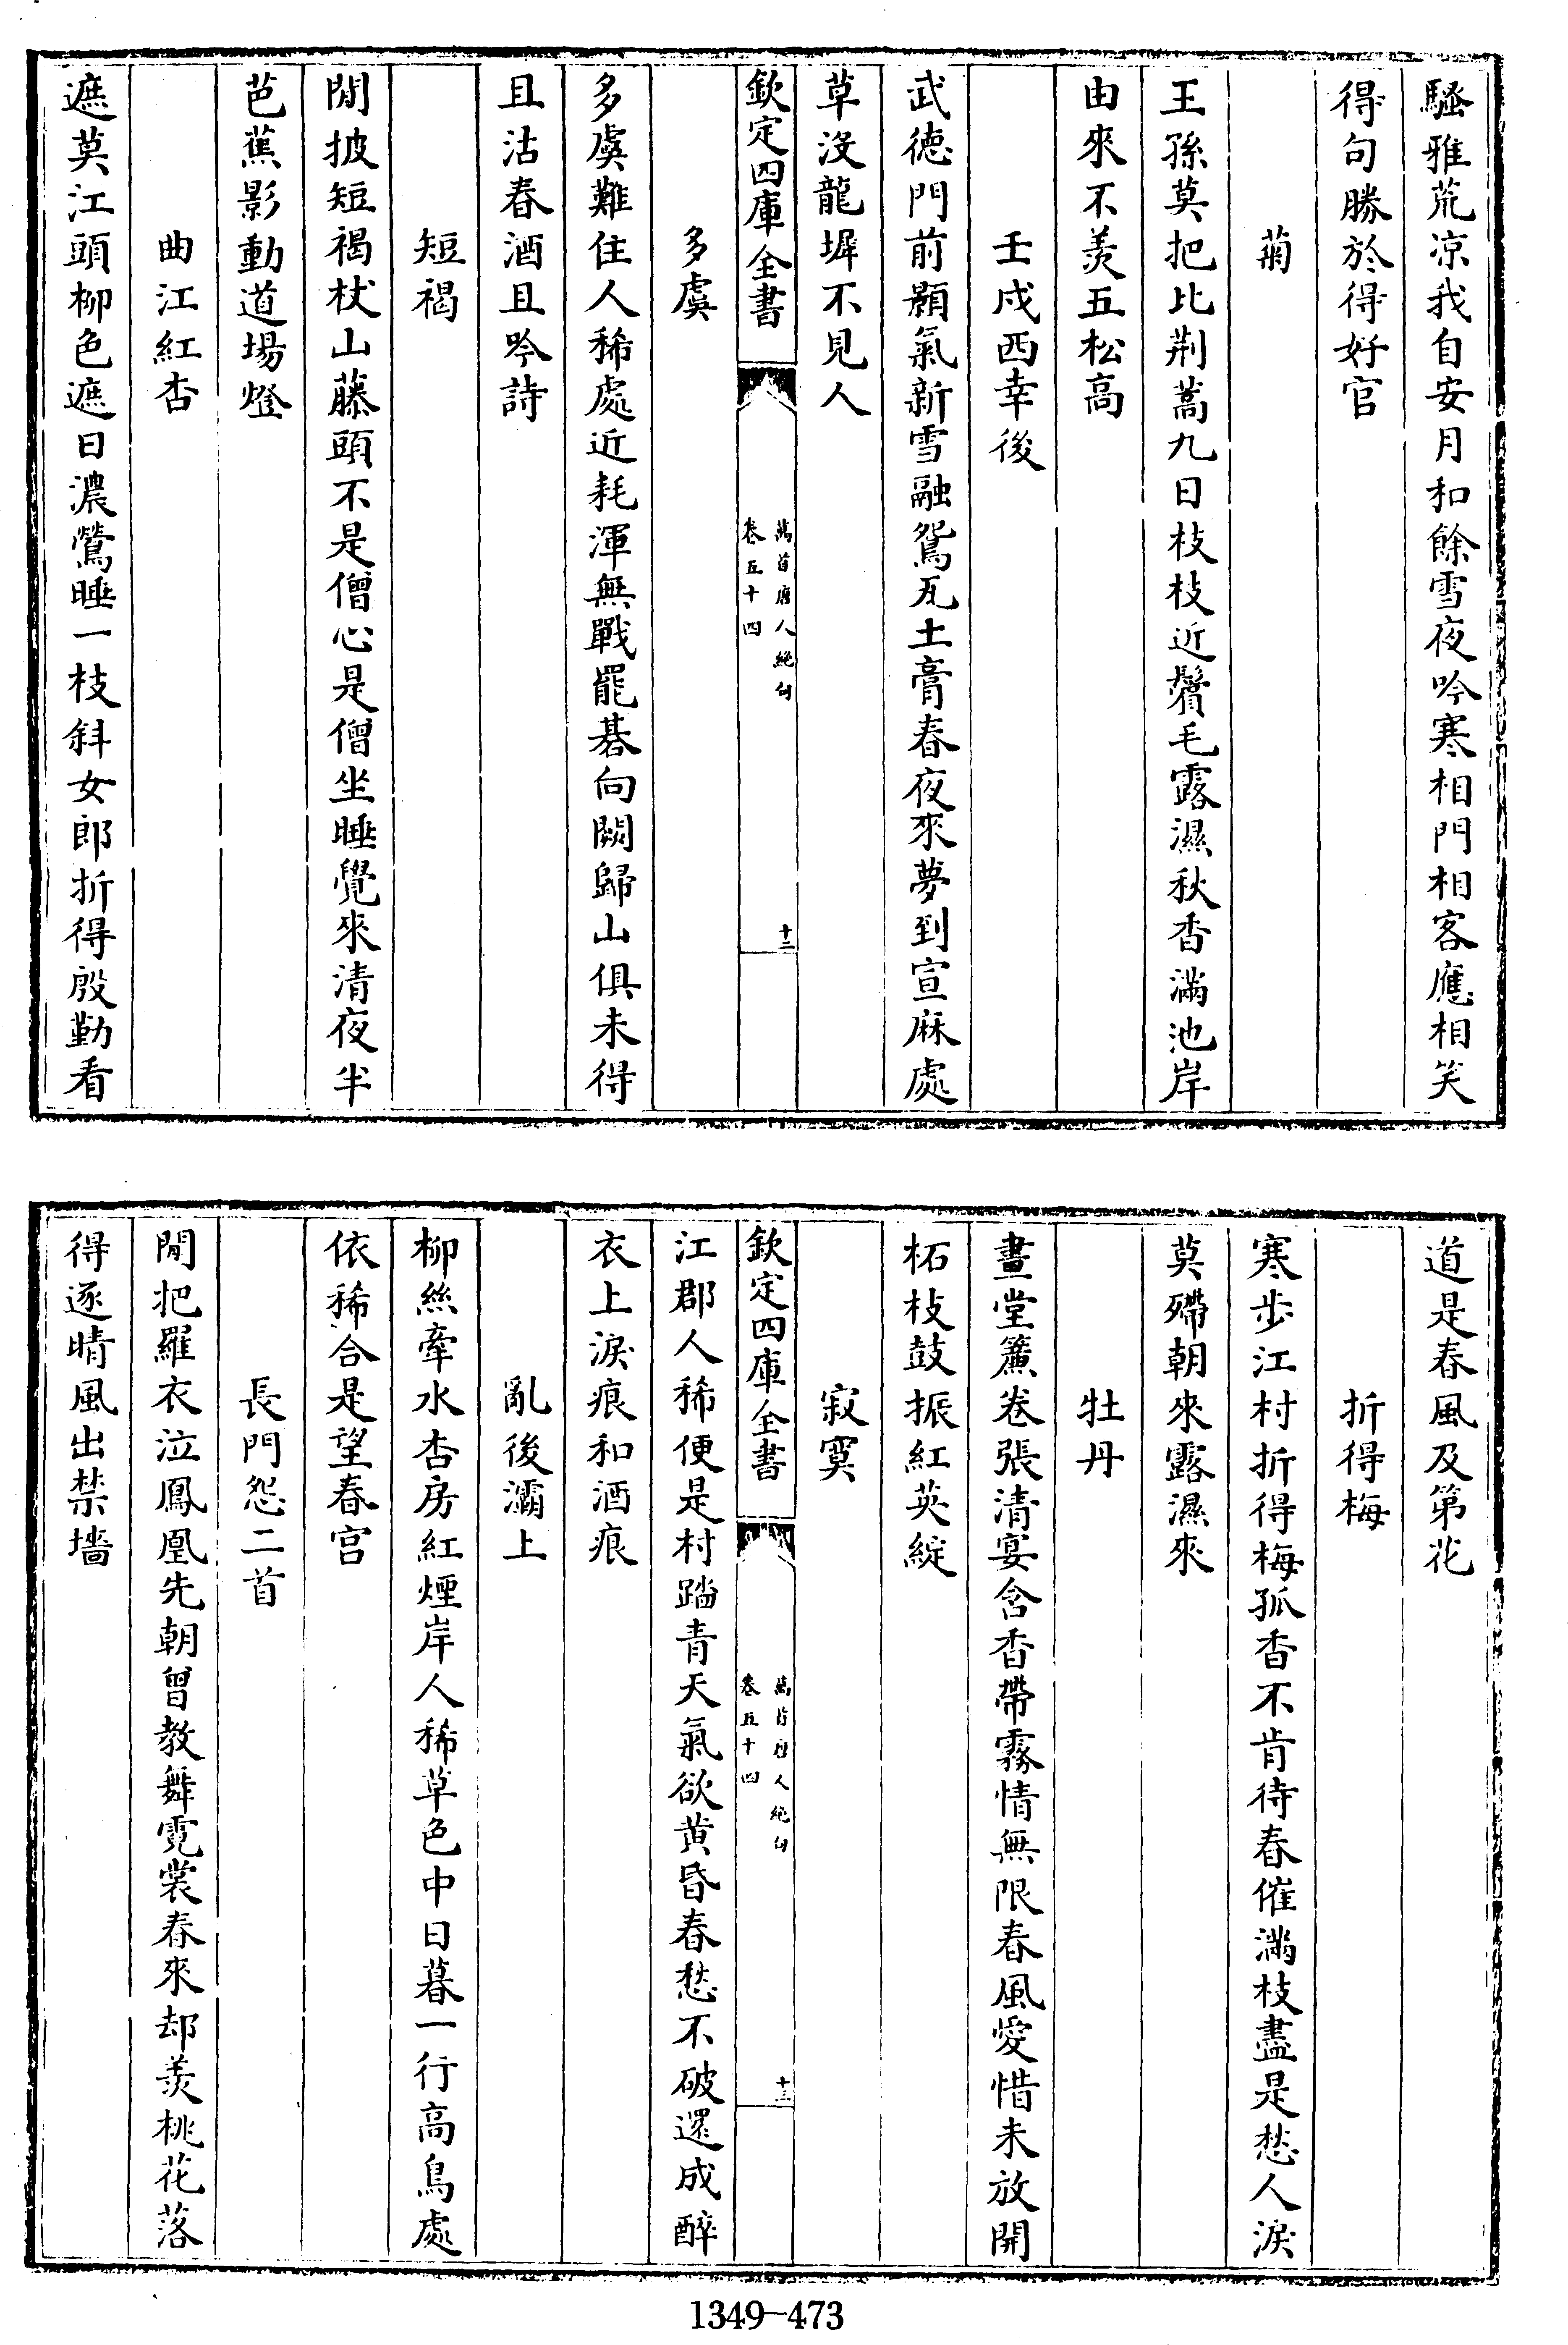 騷雅荒凉我自安月和餘雪夜吟寒相門相客應相笑
得句勝於得好官
菊
王孫莫把比荆蒿九日枝枝近鬢毛露濕秋香滿池岸
由來不羡五松高
壬戍西幸後
武德門前顥氣新雪融鴛瓦土膏春夜來夢到宣麻處
草沒龍墀不見人
欽定四庫全書
萬首唐人絶句
卷五十四
十二
多虞
多虞難住人稀處近耗渾無戰罷棊向闕歸山俱未得
且沽春酒且吟詩
短褐
閒披短褐杖山藤頭不是僧心是僧坐睡覺來清夜半
芭蕉影動道場燈
曲江紅杏
遮莫江頭柳色遮日濃鶯睡一枝斜女郎折得殷勤看
道是春風及第花
折得梅
寒步江村折得梅孤香不肯待春催滿枝盡是愁人淚
莫殢朝來露濕來
牡丹
畫堂簾卷張清宴含香帶霧情無限春風愛惜未放開
柘枝鼓振紅英綻
寂寞
欽定四庫全書
萬首唐人絶句
卷五十四
十三
江郡人稀便是村踏青天氣欲黄昏春愁不破還成醉
衣上淚痕和酒痕
亂後灞上
柳絲牽水杏房紅煙岸人稀草色中日暮一行高鳥處
依稀合是望春宫
長門怨二首
閒把羅衣泣鳳凰先朝曾教舞霓裳春來却羡桃花落
得逐晴風出禁墻
1349-473